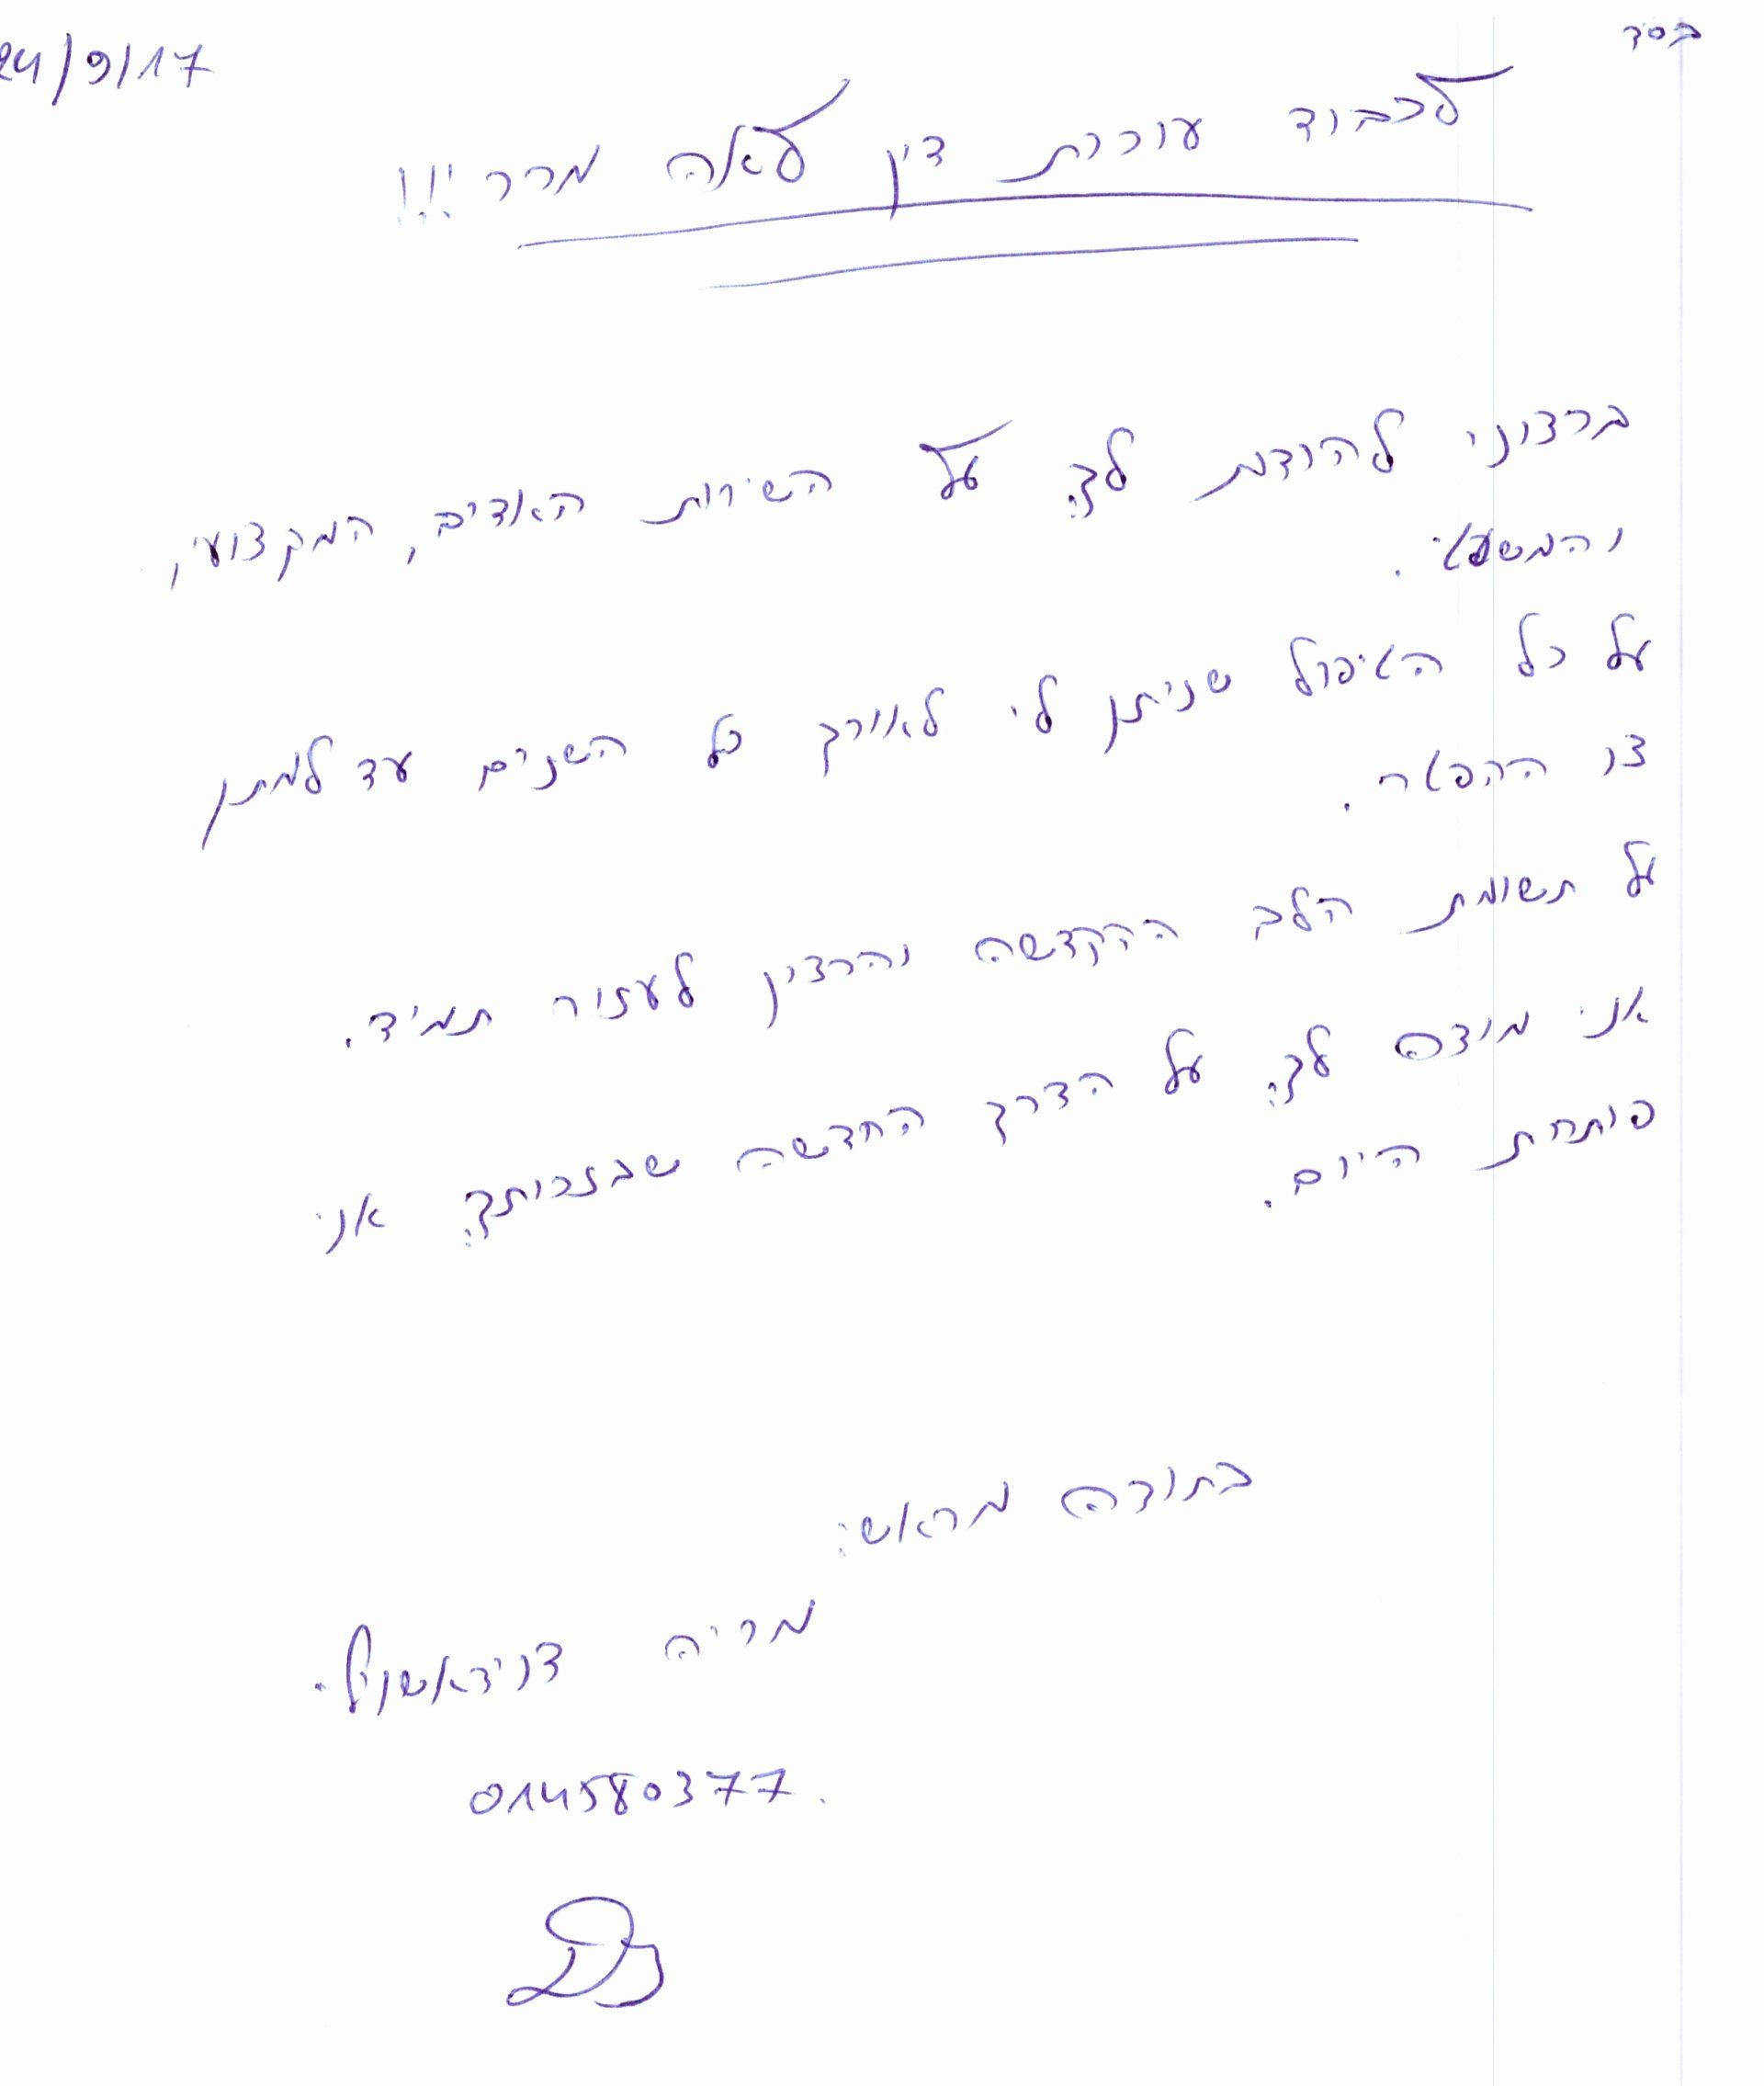 בסד
24/9/17
לכבוד עורכת דין לאה מרר !!!
ברצוני להודות לך על השירות האדיב, המקצועי,
והמשפטי.
על כל הטיפול שניתן לי לאורך כל השנים עד למתן
צו ההפטר.
על תשומת הלב ההקדשה והרצון לעזור תמיד.
אני מודה לך על הדרך החדשה שבזכותך אני
פותחת היום.
בתודה מראש:
מריה
014580377.